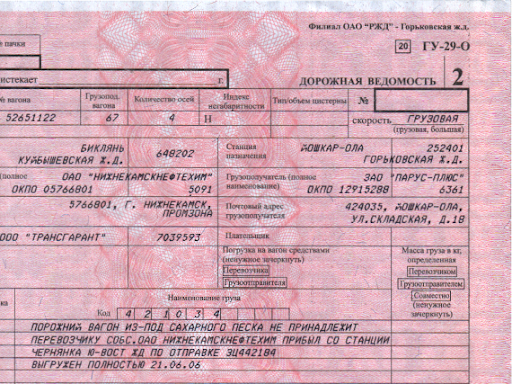 Филиал ОАО "РЖД" - Горьковская ж.д.
е пачки
20 ГУ-29-О
истекает г.
ДОРОЖНАЯ ВЕДОМОСТЬ 2
№ вагона Грузопод. вагона Количество осей Индекс негабаритности Тип/объем цистерны №
52651122 67 4 Н скорость ГРУЗОВАЯ
(грузовая, большая)
БИКЛЯНЬ 648202 Станция назначения ЙОШКАР-ОЛА 252401
КУЙБЫШЕВСКАЯ Ж.Д. ГОРЬКОВСКАЯ Ж.Д.
(полное ОАО "НИЖНЕКАМСКНЕФТЕХИМ" Грузополучатель (полное наименование) ЗАО "ПАРУС-ПЛЮС"
ОКПО 05766801 5091 ОКПО 12915288 6361
5766801, Г. НИЖНЕКАМСК, Почтовый адрес грузополучателя 424035, ЙОШКАР-ОЛА,
ПРОМЗОНА УЛ.СКЛАДСКАЯ, Д.18
ООО "ТРАНСГАРАНТ" 7039593 Плательщик
Погрузка на вагон средствами (ненужное зачеркнуть) Масса груза в кг, определенная
Перевозчика Перевозчиком
Грузоотправителя Грузоотправителем
Совместно
(ненужное зачеркнуть)
Наименование груза
Код 4 2 1 0 3 4
ПОРОЖНИЙ ВАГОН ИЗ-ПОД САХАРНОГО ПЕСКА НЕ ПРИНАДЛЕЖИТ
ПЕРЕВОЗЧИКУ СОБС.ОАО НИЖНЕКАМСКНЕФТЕХИМ ПРИБЫЛ СО СТАНЦИИ
ЧЕРНЯНКА Ю-ВОСТ ЖД ПО ОТПРАВКЕ ЭЦ442184
ВЫГРУЖЕН ПОЛНОСТЬЮ 21.06.06